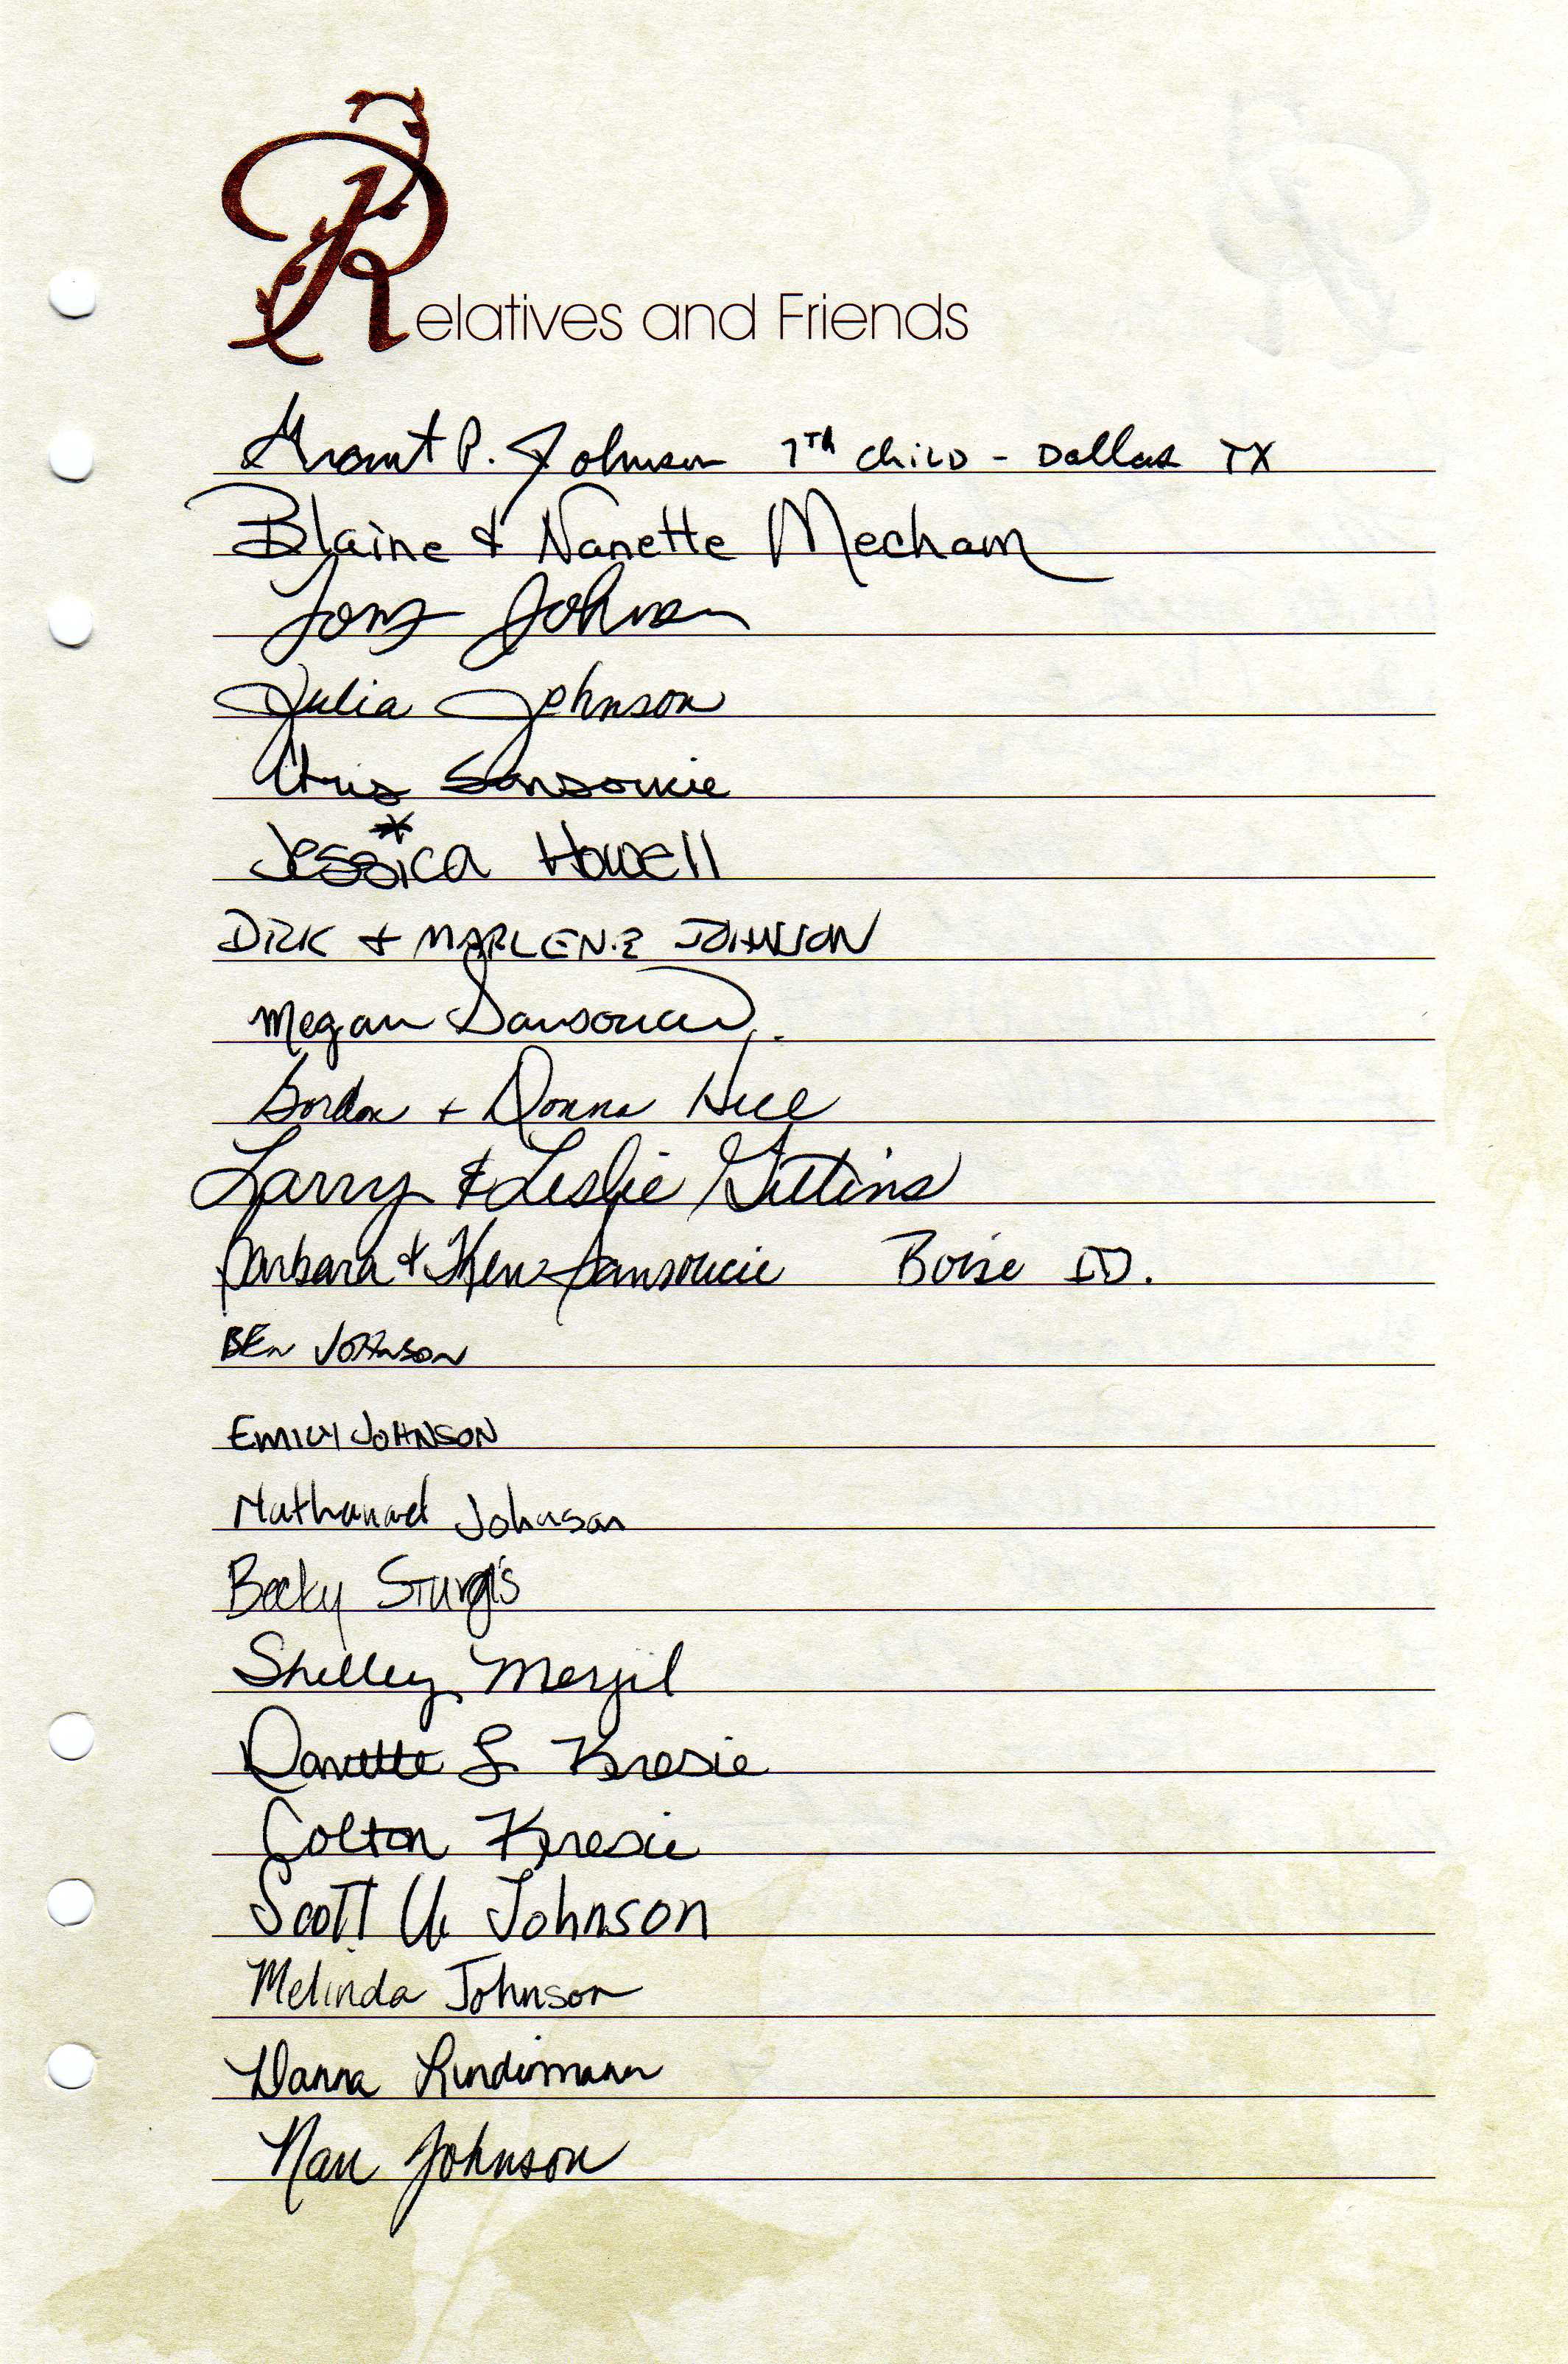 Relatives and Friends
Grant P. Johnson 7Th Child - Dallas TX
Blaine & Nanette Mecham
Tony Johnson
Julia Johnson
Chris Sansoucie
Jessica Howell
DIRK + MARLENE JOHNSON
Megan Sansoucie
Gordon + Donna Hill
Larry & Leslie Gittins
Barbara & Ken Sansoucie Boise ID.
BEN JOHNSON
EMILY JOHNSON
Nathanael Johnson
Becky Sturgis
Shelley Merjil
Danette L Kresie
Colton Kresie
Scott U. Johnson
Melinda Johnson
Danna Lindemann
Nan Johnson